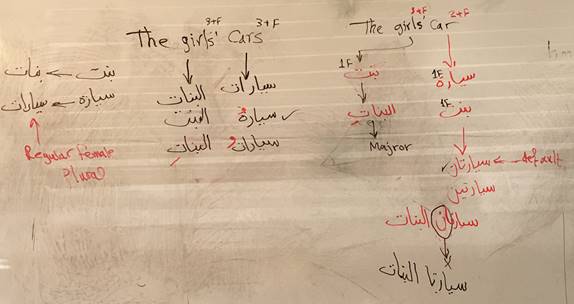 3+F 3+F
The girls' Cars
بنت ← بنات
سيارة ← سيارات
Regular Female
Plural
سيارات البنات
سيارة البنت ✓
سيارات البنات
3+F 2+F
The girls' Car
1F 1F
بنت سيارة
1F
البنات بنت
Majror
سيارتان ← default
سيارتين
سيارتان البنات
سيارتا البنات